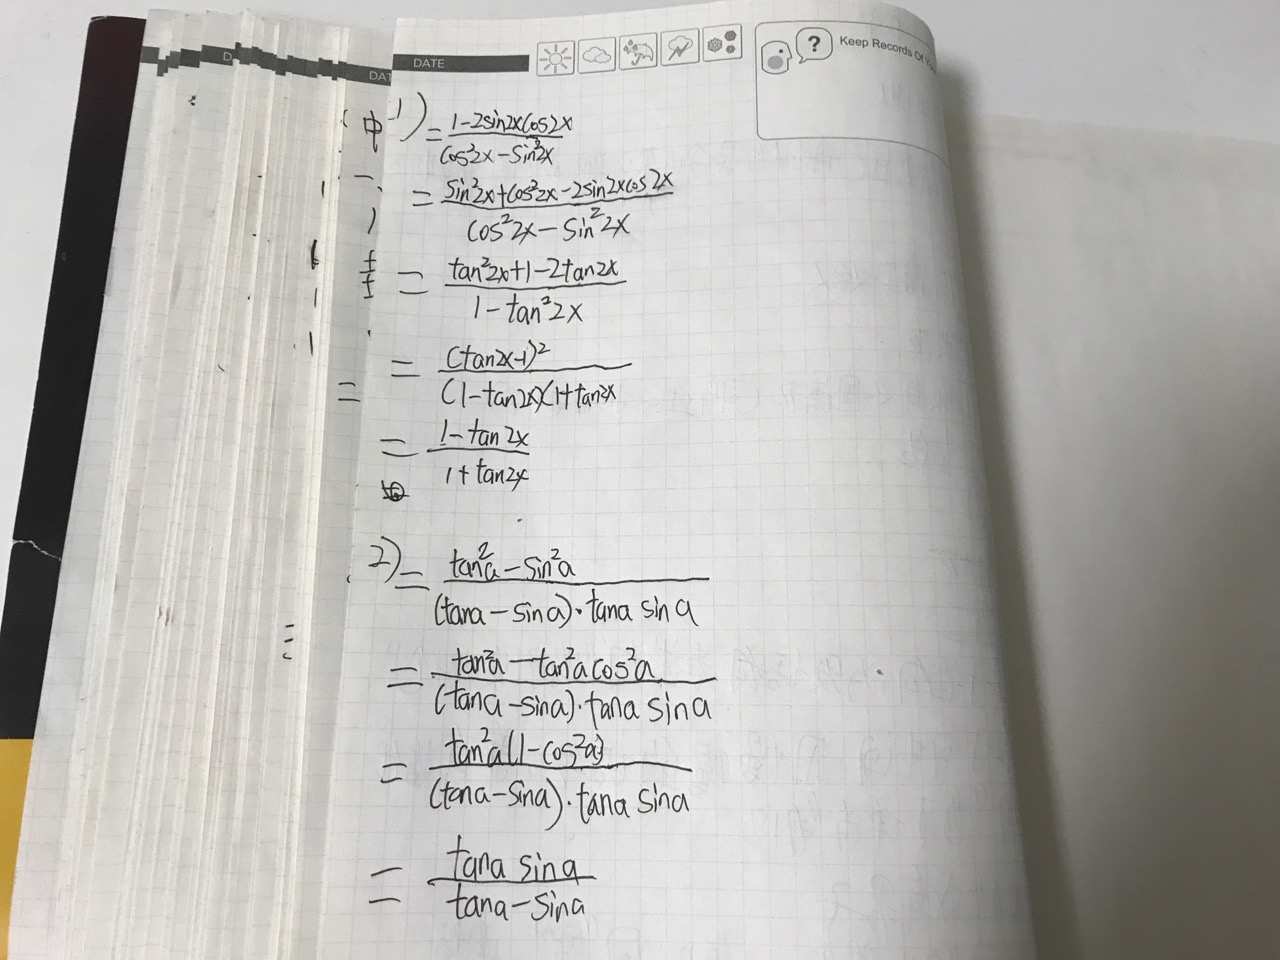 DATE
Keep Records Of
1) = \frac{1-2sin2xcos2x}{cos²2x-sin²2x}
= \frac{sin²2x+cos²2x-2sin2xcos2x}{cos²2x-sin²2x}
= \frac{tan²2x+1-2tan2x}{1-tan²2x}
= \frac{(tan2x-1)²}{(1-tan2x)(1+tan2x}
= \frac{1-tan2x}{1+tan2x}
2) = \frac{tan²a-sin²a}{(tana-sina)·tana sina}
= \frac{tan²a-tan²acos²a}{(tana-sina)·tana sina}
= \frac{tan²a(1-cos²a)}{(tana-sina)·tana sina}
= \frac{tana sina}{tana-sina}